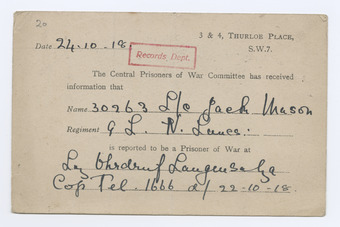 20
3 & 4, THURLOE PLACE,
Date 24.10.18. S.W.7.
Records Dept.
The Central Prisoners of War Committee has received
information that
Name 30263 L/c Jack Mason
Regiment G L. N. Lancs:
is reported to be a Prisoner of War at
Ohrdruf Langensalza
Cop Tel. 1666 d/ 22-10-18.